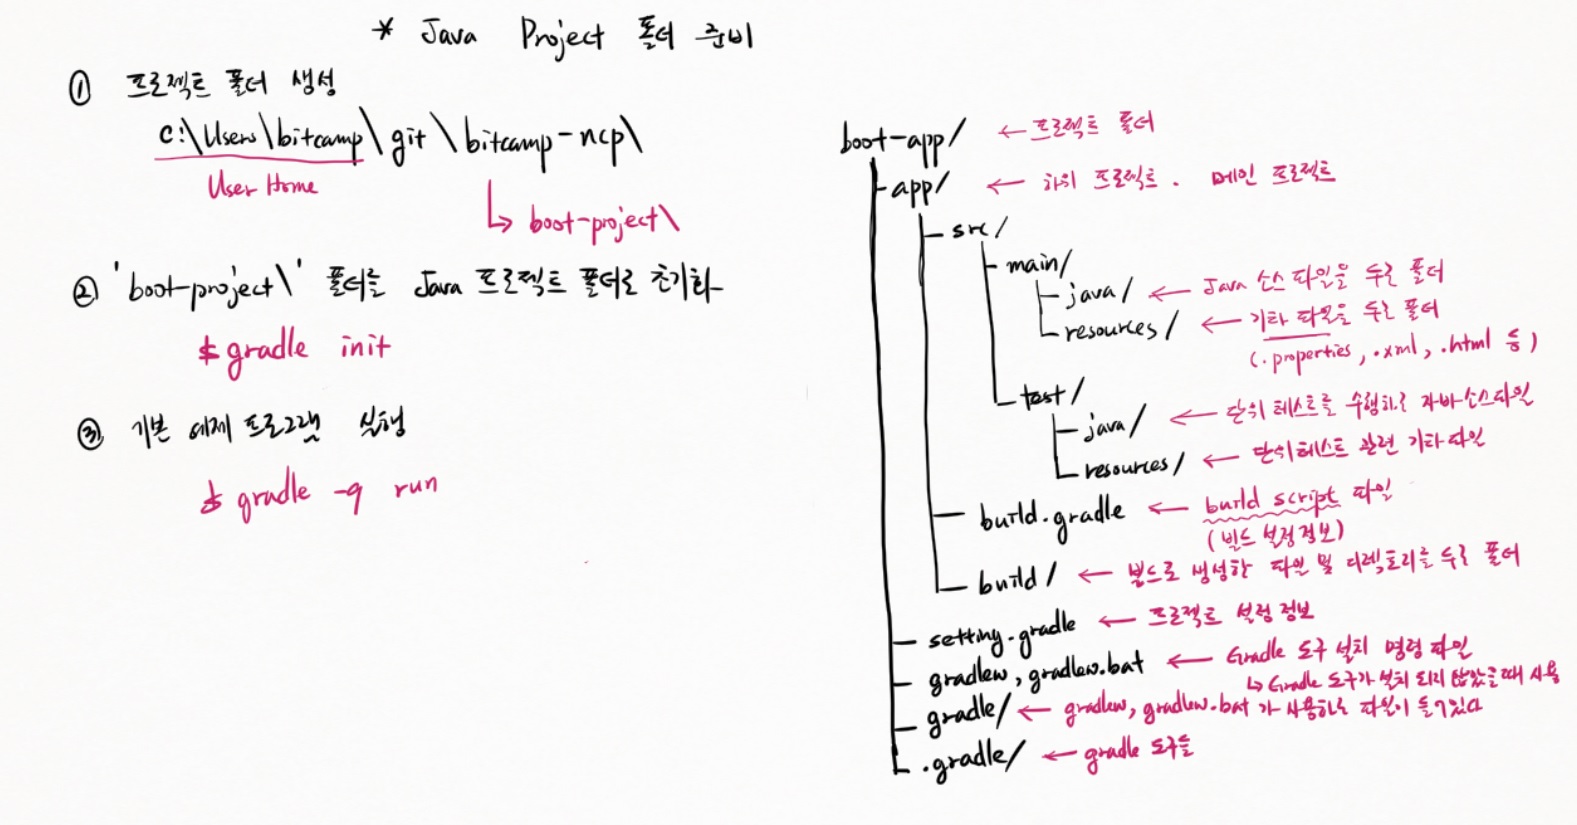 * Java Project 폴더 준비
① 프로젝트 폴더 생성
c:\Users\bitcamp\git\bitcamp-ncp\
User Home
↳ boot-project\
② 'boot-project\' 폴더를 Java 프로젝트 폴더로 초기화
$ gradle init
③ 기본 예제 프로그램 실행
$ gradle -q run
boot-app/ ← 프로젝트 폴더
app/ ← 하위 프로젝트. 메인 프로젝트
src/
main/
java/ ← Java 소스 파일을 두는 폴더
resources/ ← 기타 파일을 두는 폴더
(.properties, .xml, .html 등)
test/
java/ ← 단위 테스트를 수행하는 자바 소스 파일
resources/ ← 단위 테스트 관련 기타 파일
build.gradle ← build script 파일
(빌드 설정 정보)
build/ ← 빌드로 생성한 파일 및 디렉토리를 두는 폴더
setting.gradle ← 프로젝트 설정 정보
gradlew, gradlew.bat ← Gradle 도구 설치 명령 파일
↳ Gradle 도구가 설치 되지 않았을 때 사용
gradle/ ← gradlew, gradlew.bat 가 사용하는 파일이 들어있다
.gradle/ ← gradle 도구들